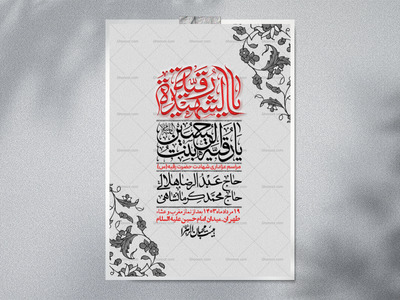 یا رقیة الشهیدة
یا رقیة بنت الحسین
مراسم عزاداری شهادت حضرت رقیه (س)
حاج عبدالرضا هلالی
حاج محمد کرمانشاهی
۱۹ مرداد ماه ۱۴۰۳ بعد از نماز مغرب و عشاء
طهران، میدان امام حسین علیه السلام